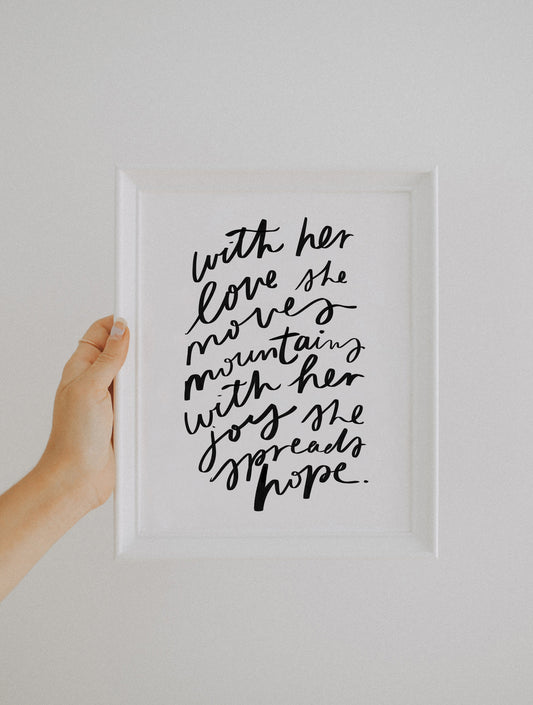 with her
love she
moves
mountains
with her
joy she
spreads
hope.